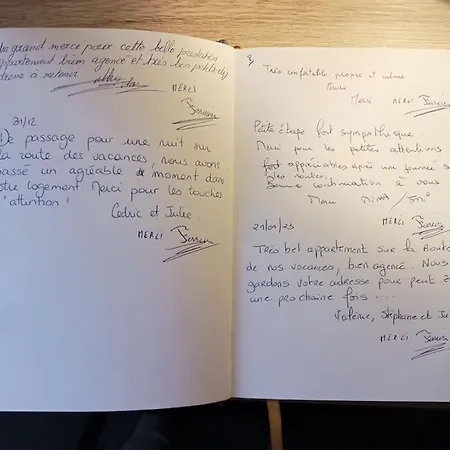 Un grand merci pour cette belle prestation
appartement bien agencé et très bon petits dej
adresse à retenir
MERCI
31/12
De passage pour une nuit sur
la route des vacances, nous avons
passé un agréable moment dans
votre logement. Merci pour les touches
d'attention !
Cédric et Julie.
MERCI
Très confortable propre et calme
Merci MERCI
Petite étape fort sympathique.
Merci pour les petites attentions
fort appréciables après une journée sur
les routes.
Bonne continuation à vous
MERCI
21/01/23
Très bel appartement sur la Route
de nos vacances, bien agencé. Nous
gardons votre adresse pour peut être
une prochaine fois ....
Valérie, Stéphane et
MERCI